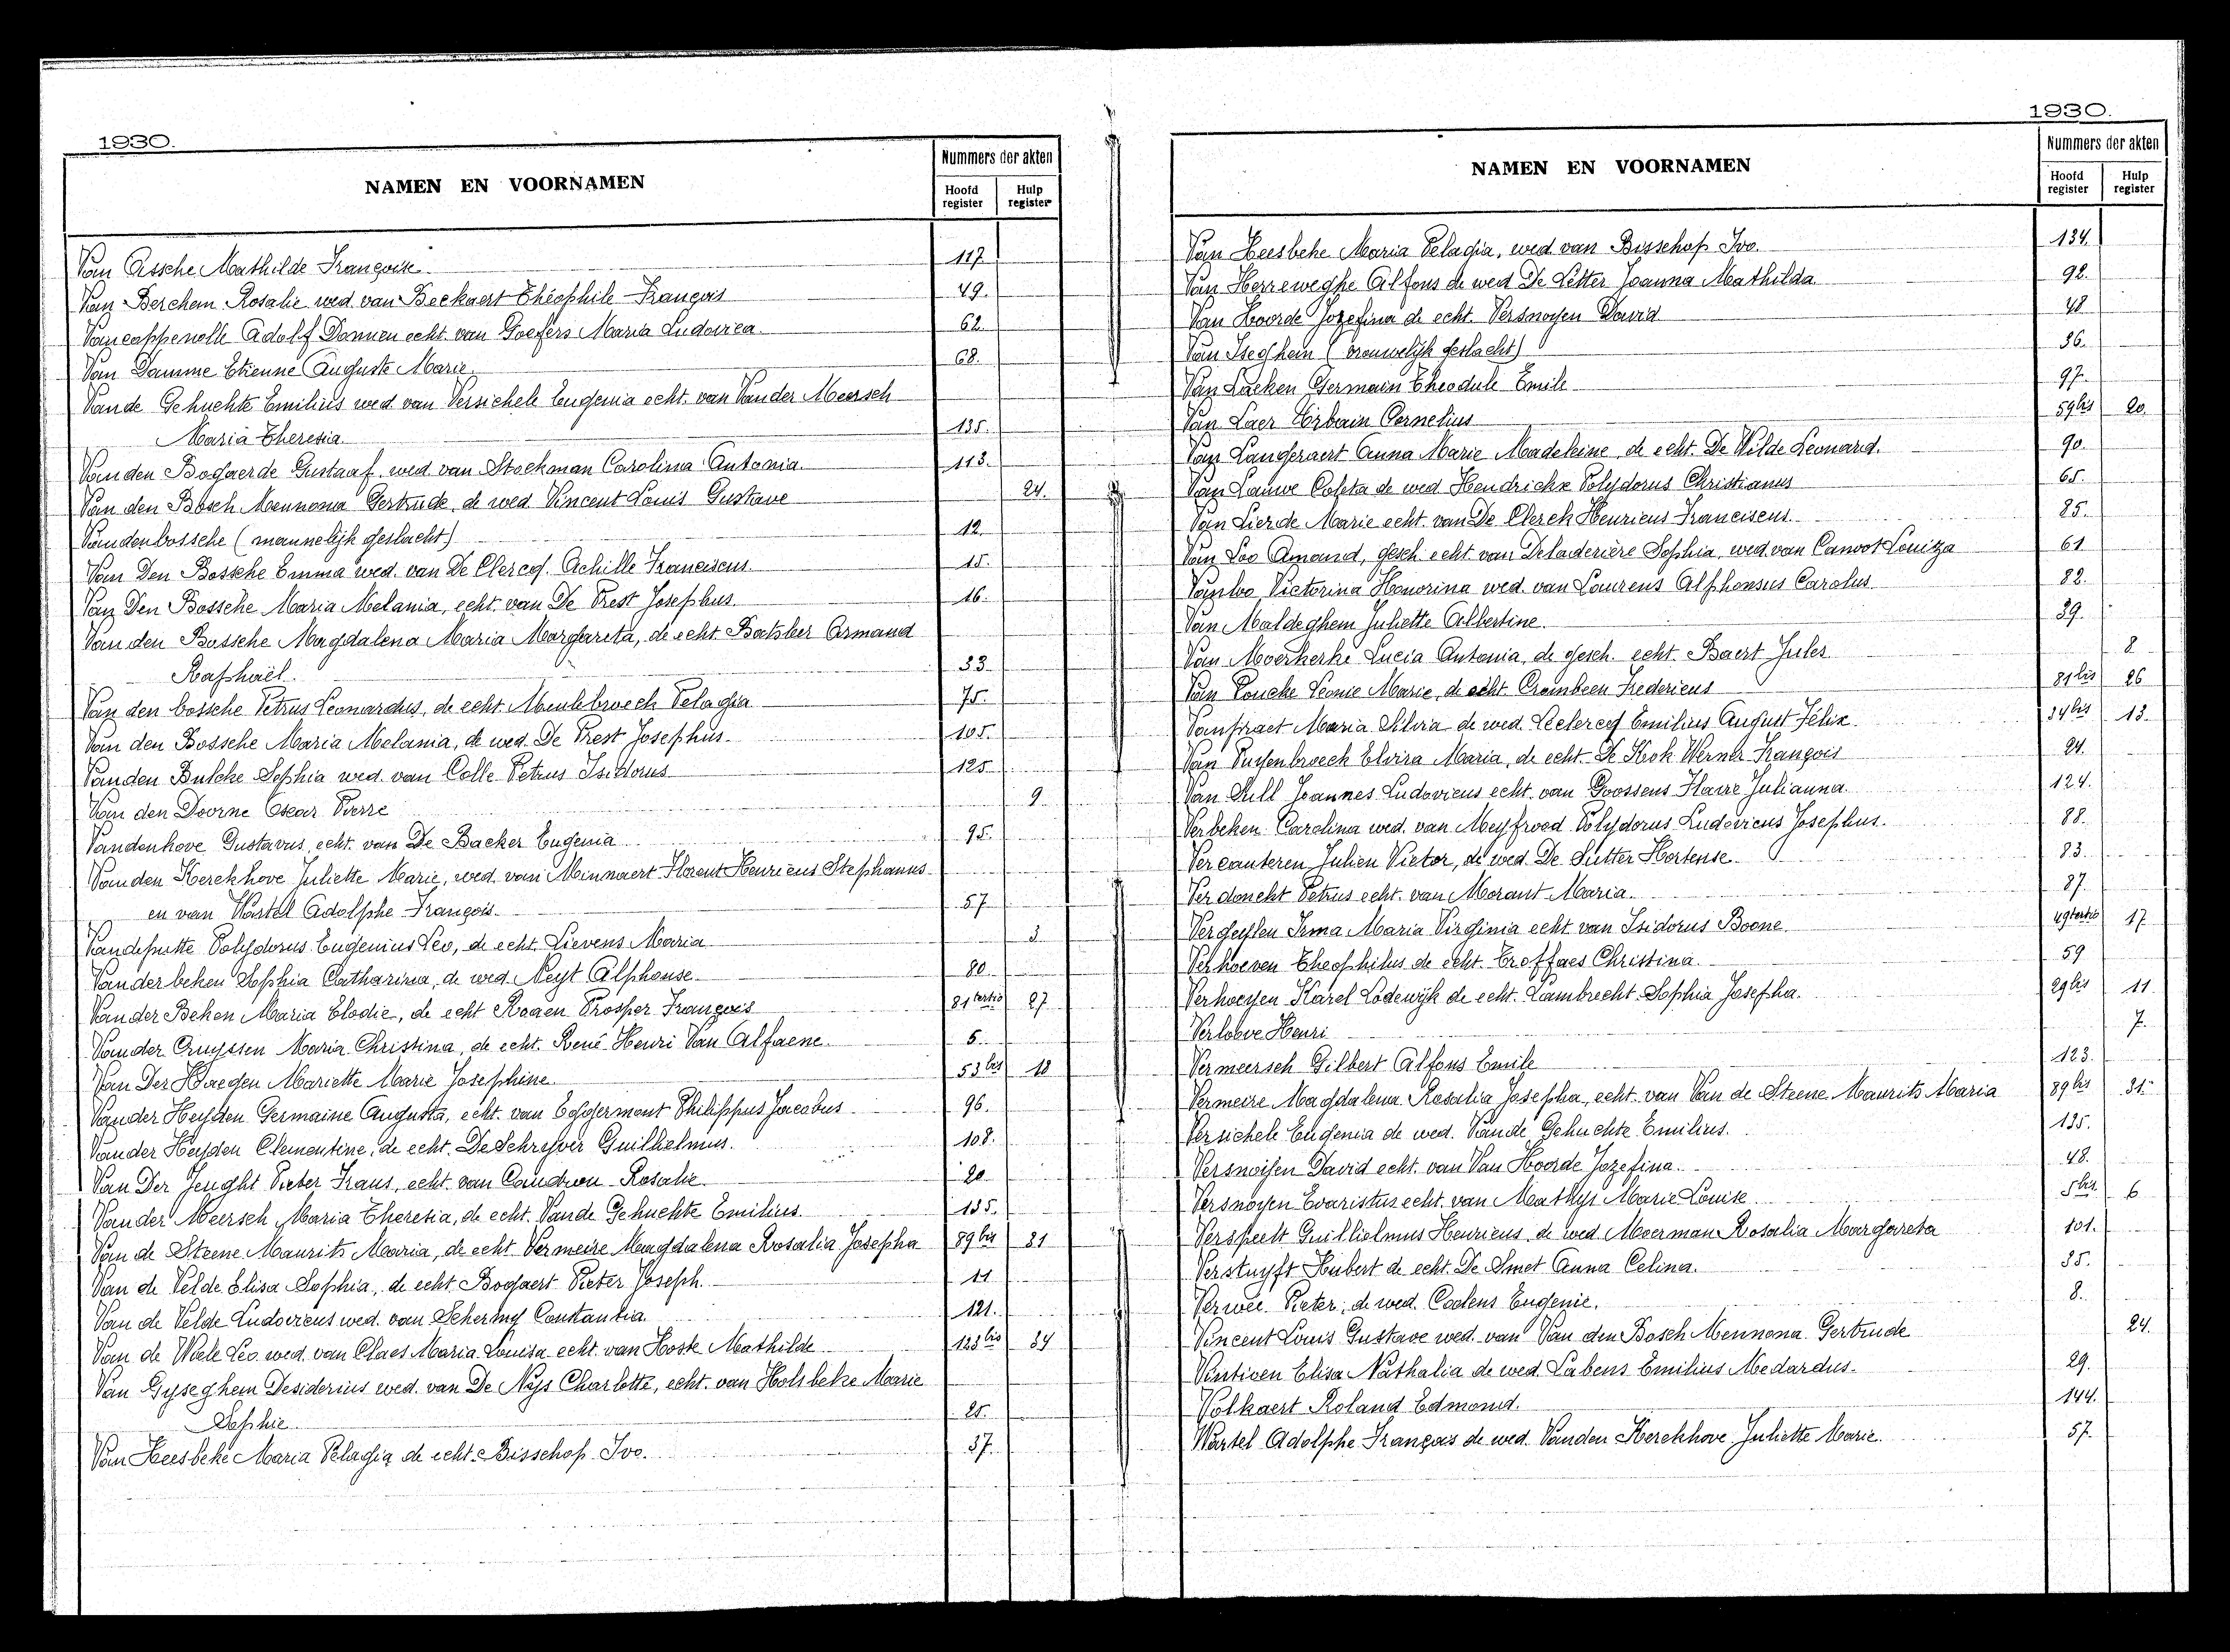 1930.
NAMEN EN VOORNAMEN
Nummers der akten
Hoofd register
Hulp register
Van Assche Mathilde Françoise 117.
Van Berchem Rosalie wed. van Beekaert Théophile François 49.
Vancappenolle Adolf Damien echt. van Goefers Maria Ludovica 62.
Van Damme Etienne Auguste Marie. 68.
Van de Gehuchte Emilius wed van Versichele Eugenia echt. van Vander Meersch
Maria Theresia. 135.
Van den Bogaerde Gustaaf wed. van Stockman Carolina Antonia. 113.
Van den Bosch Mennona Gertrude, de wed. Vincent Louis Gustave 24.
Vandenbossche (mannelijk geslacht) 12.
Van Den Bossche Emma wed. van De Clercq Achille Franciscus 15.
Van Den Bossche Maria Melania, echt. van De Prest Josephus. 16.
Van den Bossche Magdalena Maria Margareta, de echt. Batsleer Armand
Raphaël. 33.
Van den bossche Petrus Leonardus, de echt. Meulebroeck Pelagia 75.
Van den Bossche Maria Melania, de wed. De Prest Josephus. 105.
Vanden Bulcke Sophia wed. van Colle Petrus Isidorus 125.
Van den Doorne Oscar Pierre 9.
Vandenhove Gustavus, echt. van De Backer Eugenia 95.
Van den Kerckhove Juliette Marie, wed. van Minnaert Florent Henricus Stephanus
en van Wartel Adolphe François. 57
Vandeputte Polydorus Eugenius Leo, de echt. Lievens Maria 3.
Vanderbeken Sophia Catharina, de wed. Neyt Alphonse. 80
Van der Beken Maria Elodie, de echt Rogen Prosper François 81 tertio 27
Van der Cruyssen Maria Christina, de echt. René Henri Van Alfaene. 5.
Van Der Haegen Mariette Marie Josephine. 53 bis 18
Vander Heyden Germaine Augusta, echt. van Eggermont Philippus Jacobus 96.
Van der Heyden Clementine, de echt. De Schryver Guilhelmus. 108.
Van Der Jeught Pieter Frans, echt. van Candron Rosalie. 20
Van der Meersch Maria Theresia, de echt. Vande Gehuchte Emilius. 135.
Van de Steene Maurits Maria, de echt. Vermeire Magdalena Rosalia Josepha 89 bis 31
Van de Velde Elisa Sophia, de echt. Bogaert Pieter Joseph. 11
Van de Velde Ludovicus wed. van Schering Constantia. 121.
Van de Wiele Leo. wed. van Claes Maria Louisa echt. van Hoste Mathilde 133 bis 34
Van Gyseghem Desiderius wed. van De Nys Charlotte, echt. van Holsbeke Marie
Sophie. 25.
Van Heesbeke Maria Pelagia de echt. Bisschop Ivo. 37.
1930.
NAMEN EN VOORNAMEN
Nummers der akten
Hoofd register
Hulp register
Van Heesbeke Maria Pelagia, wed. van Bisschop Ivo. 134.
Van Herreweghe Alfons de wed De Letter Joanna Mathilda. 92.
Van Hoorde Jozefina de echt. Versnoyen David 48
Van Iseghem (vrouwelijk geslacht) 36.
Van Laeken Germain Theodule Emile 97.
Van Laer Urbain Cornelius 59 bis 20.
Van Langeraert Anna Marie Madeleine, de echt. De Wilde Leonard. 90.
Van Lauwe Coleta de wed Hendrickx Polydorus Christianus 65.
Van Lierde Marie echt. van De Clerck Henricus Franciscus. 85.
Van Loo Amand, gesch. echt. van Deladerière Sophia, wed. van Canvot Louiza 61
Vanloo Victorina Honorina wed. van Laurens Alphonsus Carolus 82.
Van Maldeghem Juliette Albertine. 39.
Van Moerkerke Lucia Antonia, de gesch. echt. Baert Jules 8
Van Poucke Leonie Marie, de echt Crombeen Fredericus 81 bis 26
Vanpraet Maria Silvia de wed. Leclercq Emilius August Félix. 34 bis 13.
Van Puyenbroeck Elvira Maria, de echt. De Kok Werner François 24.
Van Sull Joannes Ludovicus echt. van Goossens Flavie Julianna 124.
Verbeken Carolina wed. van Meyfrood Polydorus Ludovicus Josephus. 88.
Vercauteren Julien Victor, de wed. De Sutter Hortense. 83.
Verdonckt Petrus echt. van Morant Maria. 87.
Vergeylen Irma Maria Virginia echt. van Isidorus Boone. 49 tertio 17
Verhoeven Theophilus de echt. Troffaes Christina. 59
Verhoeyen Karel Lodewijk de echt. Lambrecht Sophia Josepha. 29 bis 11
Verloove Henri 7.
Vermeersch Gilbert Alfons Emile 123.
Vermeire Magdalena Rosalia Josepha, echt. van Van de Steene Maurits Maria 89 bis 31.
Versichele Eugenia de wed. Van de Gehuchte Emilius. 135.
Versnoyen David echt. van Van Hoorde Jozefina. 48.
Versnoyen Evaristus echt. van Mathys Marie Louise 5 bis 6
Verspeelt Guillielmus Henricus, de wed. Moerman Rosalia Margareta 101.
Verstuyft Hubert de echt. De Smet Anna Celina. 35.
Verwée Pieter, de wed. Coolens Eugenie. 8.
Vincent Louis Gustave wed. van Van den Bosch Mennona Gertrude 24.
Vintioen Elisa Nathalia de wed. Labens Emilius Medardus. 29.
Volkaert Roland Edmond. 144.
Wartel Adolphe François de wed. Vanden Kerckhove Juliette Marie. 57.